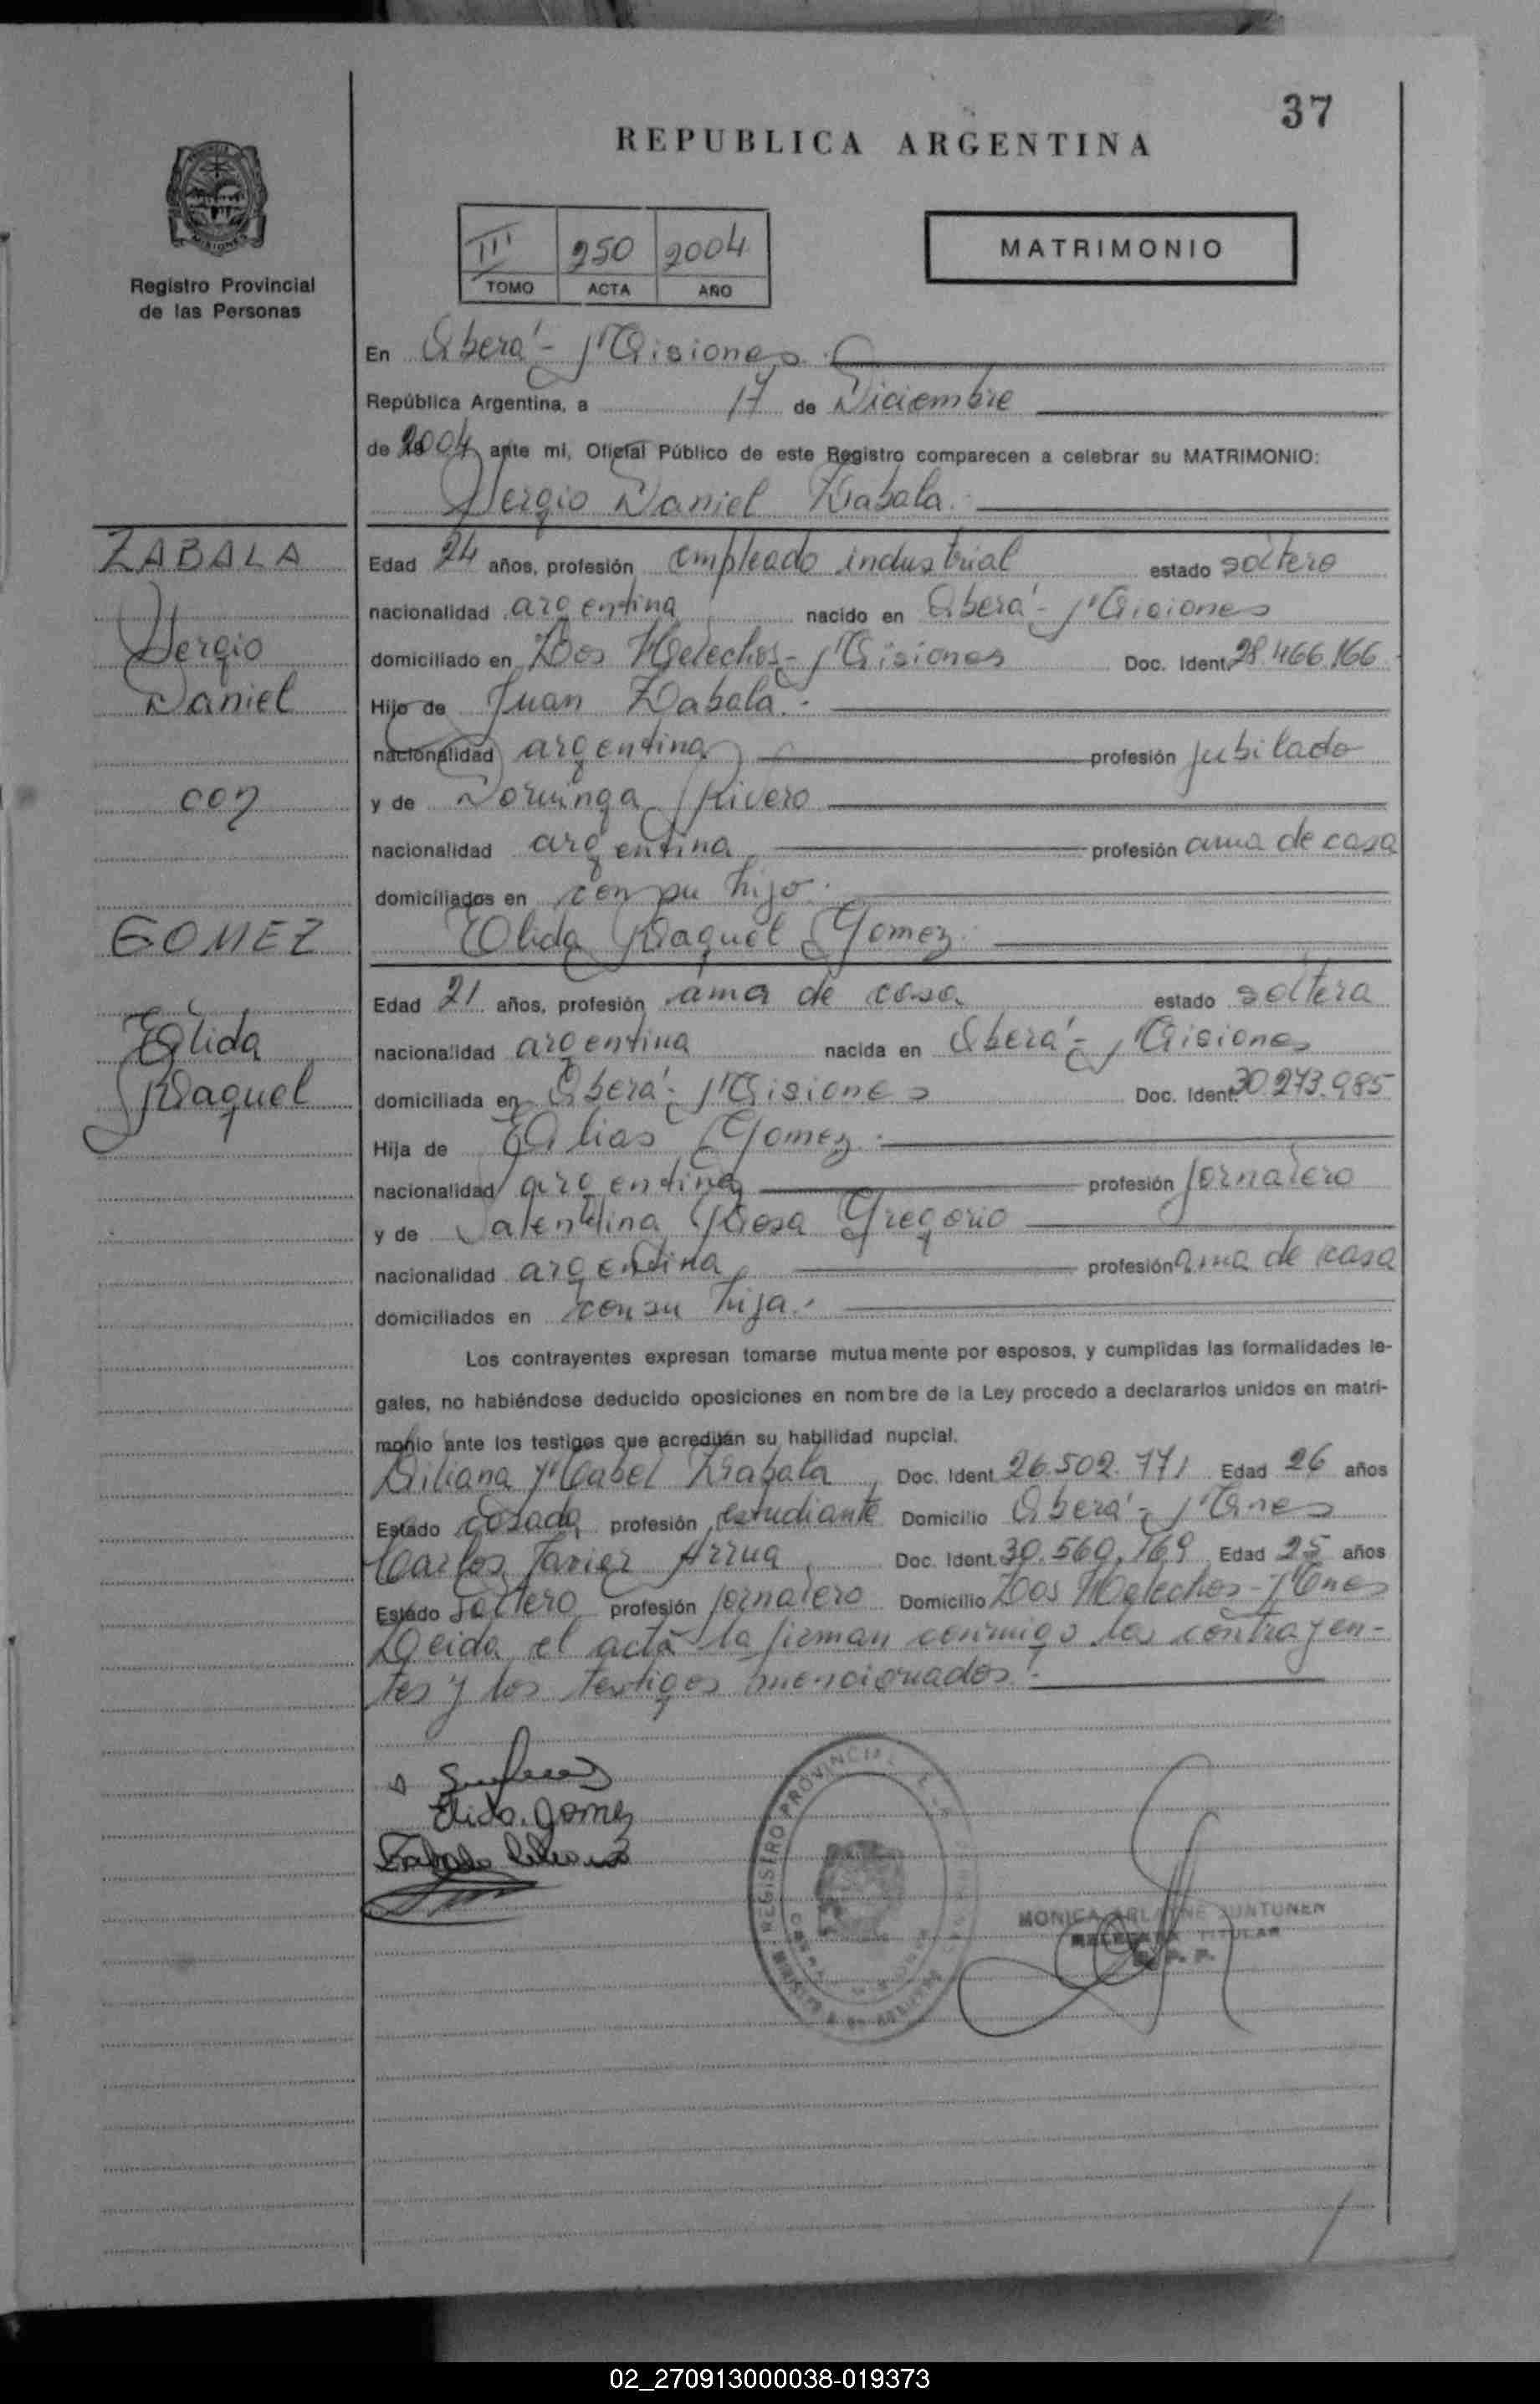 37
REPUBLICA ARGENTINA
III 250 2004
TOMO ACTA AÑO
MATRIMONIO
Registro Provincial
de las Personas
En Oberá - Misiones.
República Argentina, a 17 de Diciembre
de 2004 ante mi, Oficial Público de este Registro comparecen a celebrar su MATRIMONIO:
Sergio Daniel Zabala.
ZABALA
Sergio
Daniel
con
GOMEZ
Elida
Raquel
Edad 24 años, profesión empleado industrial estado soltero
nacionalidad argentina nacido en Oberá - Misiones
domiciliado en Dos Helechos - Misiones Doc. Ident. 28.466.166
Hijo de Juan Zabala.
nacionalidad argentina profesión jubilado
y de Dominga Rivero
nacionalidad argentina profesión ama de casa
domiciliados en con su hijo.
Elida Raquel Gomez
Edad 21 años, profesión ama de casa estado soltera
nacionalidad argentina nacida en Oberá - Misiones
domiciliada en Oberá - Misiones Doc. Ident. 30.273.985
Hija de Elias Gomez.
nacionalidad argentina profesión jornalero
y de Valentina Rosa Gregorio
nacionalidad argentina profesión ama de casa
domiciliados en con su hija.
Los contrayentes expresan tomarse mutuamente por esposos, y cumplidas las formalidades le-
gales, no habiéndose deducido oposiciones en nombre de la Ley procedo a declararlos unidos en matri-
monio ante los testigos que acreditan su habilidad nupcial.
Liliana Mabel Zabala Doc. Ident. 26.502.771 Edad 26 años
Estado casada profesión estudiante Domicilio Oberá - Mnes
Carlos Javier Arrua Doc. Ident. 30.560.769 Edad 25 años
Estado soltero profesión jornalero Domicilio Dos Helechos - Mnes
Leida el acta la firman conmigo los contrayen-
tes y los testigos mencionados.
Elida. Gomez
Zabala Liliana
REGISTRO PROVINCIAL
MONICA ARLAINE JUNTUNEN
DELEGADA TITULAR
R. P. P.
02_270913000038-019373